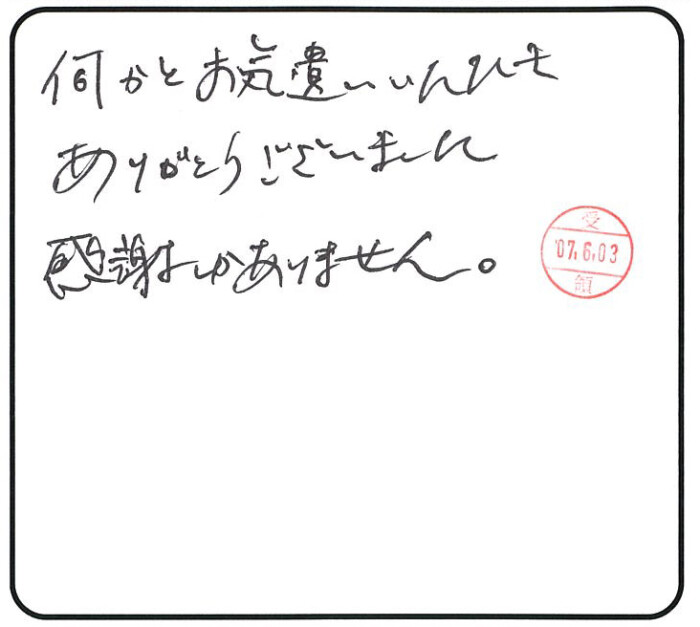 何かとお気遣いいただき
ありがとうございました
感謝しかありません。
受
'07.6.03
領